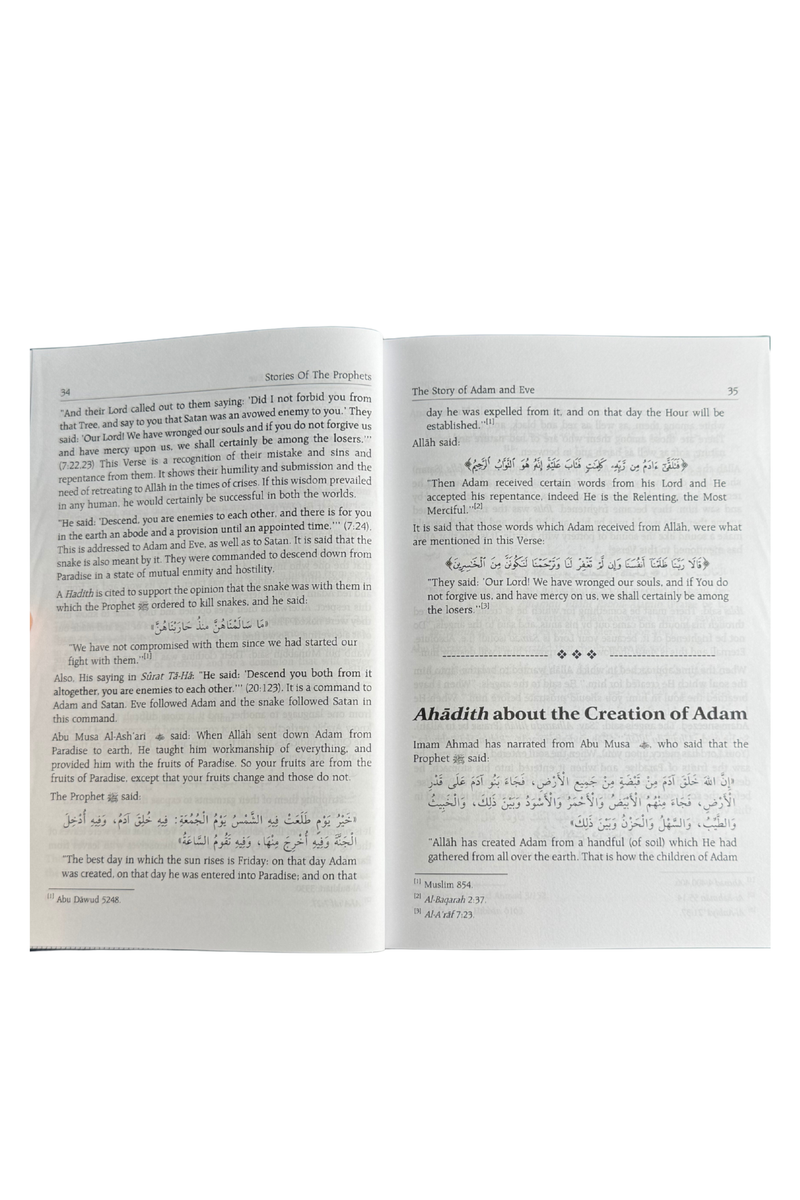 34
Stories Of The Prophets
"And their Lord called out to them saying: 'Did I not forbid you from
that Tree, and say to you that Satan was an avowed enemy to you.' They
said: 'Our Lord! We have wronged our souls and if you do not forgive us
and have mercy upon us, we shall certainly be among the losers.'"
(7:22,23) This Verse is a recognition of their mistake and sins and
repentance from them. It shows their humility and submission and the
need of retreating to Allāh in the times of crises. If this wisdom prevailed
in any human, he would certainly be successful in both the worlds.
"He said: 'Descend, you are enemies to each other, and there is for you
in the earth an abode and a provision until an appointed time.'" (7:24).
This is addressed to Adam and Eve, as well as to Satan. It is said that the
snake is also meant by it. They were commanded to descend down from
Paradise in a state of mutual enmity and hostility.
A Hadith is cited to support the opinion that the snake was with them in
which the Prophet ﷺ ordered to kill snakes, and he said:
«مَا سَالَمْنَاهُنَّ مُنذُ حَارَبْنَاهُنَّ»
"We have not compromised with them since we had started our
fight with them."[1]
Also, His saying in Sûrat Tâ-Hâ: "He said: 'Descend you both from it
altogether, you are enemies to each other.'" (20:123). It is a command to
Adam and Satan. Eve followed Adam and the snake followed Satan in
this command.
Abu Musa Al-Ash'ari said: When Allāh sent down Adam from
Paradise to earth, He taught him workmanship of everything, and
provided him with the fruits of Paradise. So your fruits are from the
fruits of Paradise, except that your fruits change and those do not.
The Prophet ﷺ said:
«خَيْرُ يَوْمٍ طَلَعَتْ فِيهِ الشَّمْسُ يَوْمُ الْجُمُعَةِ: فِيهِ خُلِقَ آدَمُ، وَفِيهِ أُدْخِلَ
الْجَنَّةَ وَفِيهِ أُخْرِجَ مِنْهَا، وَفِيهِ تَقُومُ السَّاعَةُ»
"The best day in which the sun rises is Friday; on that day Adam
was created, on that day he was entered into Paradise; and on that
[1] Abu Dāwud 5248.
The Story of Adam and Eve
35
day he was expelled from it, and on that day the Hour will be
established."[1]
Allāh said:
﴿فَتَلَقَّىٰٓ ءَادَمُ مِن رَّبِّهِۦ كَلِمَٰتٍ فَتَابَ عَلَيْهِ إِنَّهُۥ هُوَ ٱلتَّوَّابُ ٱلرَّحِيمُ﴾
"Then Adam received certain words from his Lord and He
accepted his repentance, indeed He is the Relenting, the Most
Merciful."[2]
It is said that those words which Adam received from Allāh, were what
are mentioned in this Verse:
﴿قَالَا رَبَّنَا ظَلَمْنَآ أَنفُسَنَا وَإِن لَّمْ تَغْفِرْ لَنَا وَتَرْحَمْنَا لَنَكُونَنَّ مِنَ ٱلْخَٰسِرِينَ﴾
"They said: 'Our Lord! We have wronged our souls, and if You do
not forgive us, and have mercy on us, we shall certainly be among
the losers."[3]
Ahādith about the Creation of Adam
Imam Ahmad has narrated from Abu Musa , who said that the
Prophet ﷺ said:
«إِنَّ اللهَ خَلَقَ آدَمَ مِنْ قَبْضَةٍ مِنْ جَمِيعِ الْأَرْضِ، فَجَاءَ بَنُو آدَمَ عَلَى قَدْرِ
الْأَرْضِ، فَجَاءَ مِنْهُمُ الْأَبْيَضُ وَالْأَحْمَرُ وَالْأَسْوَدُ وَبَيْنَ ذَلِكَ، وَالْخَبِيثُ
وَالطَّيِّبُ، وَالسَّهْلُ وَالْحَزْنُ وَبَيْنَ ذَلِكَ»
"Allāh has created Adam from a handful (of soil) which He had
gathered from all over the earth. That is how the children of Adam
[1] Muslim 854.
[2] Al-Baqarah 2:37.
[3] Al-A'rāf 7:23.